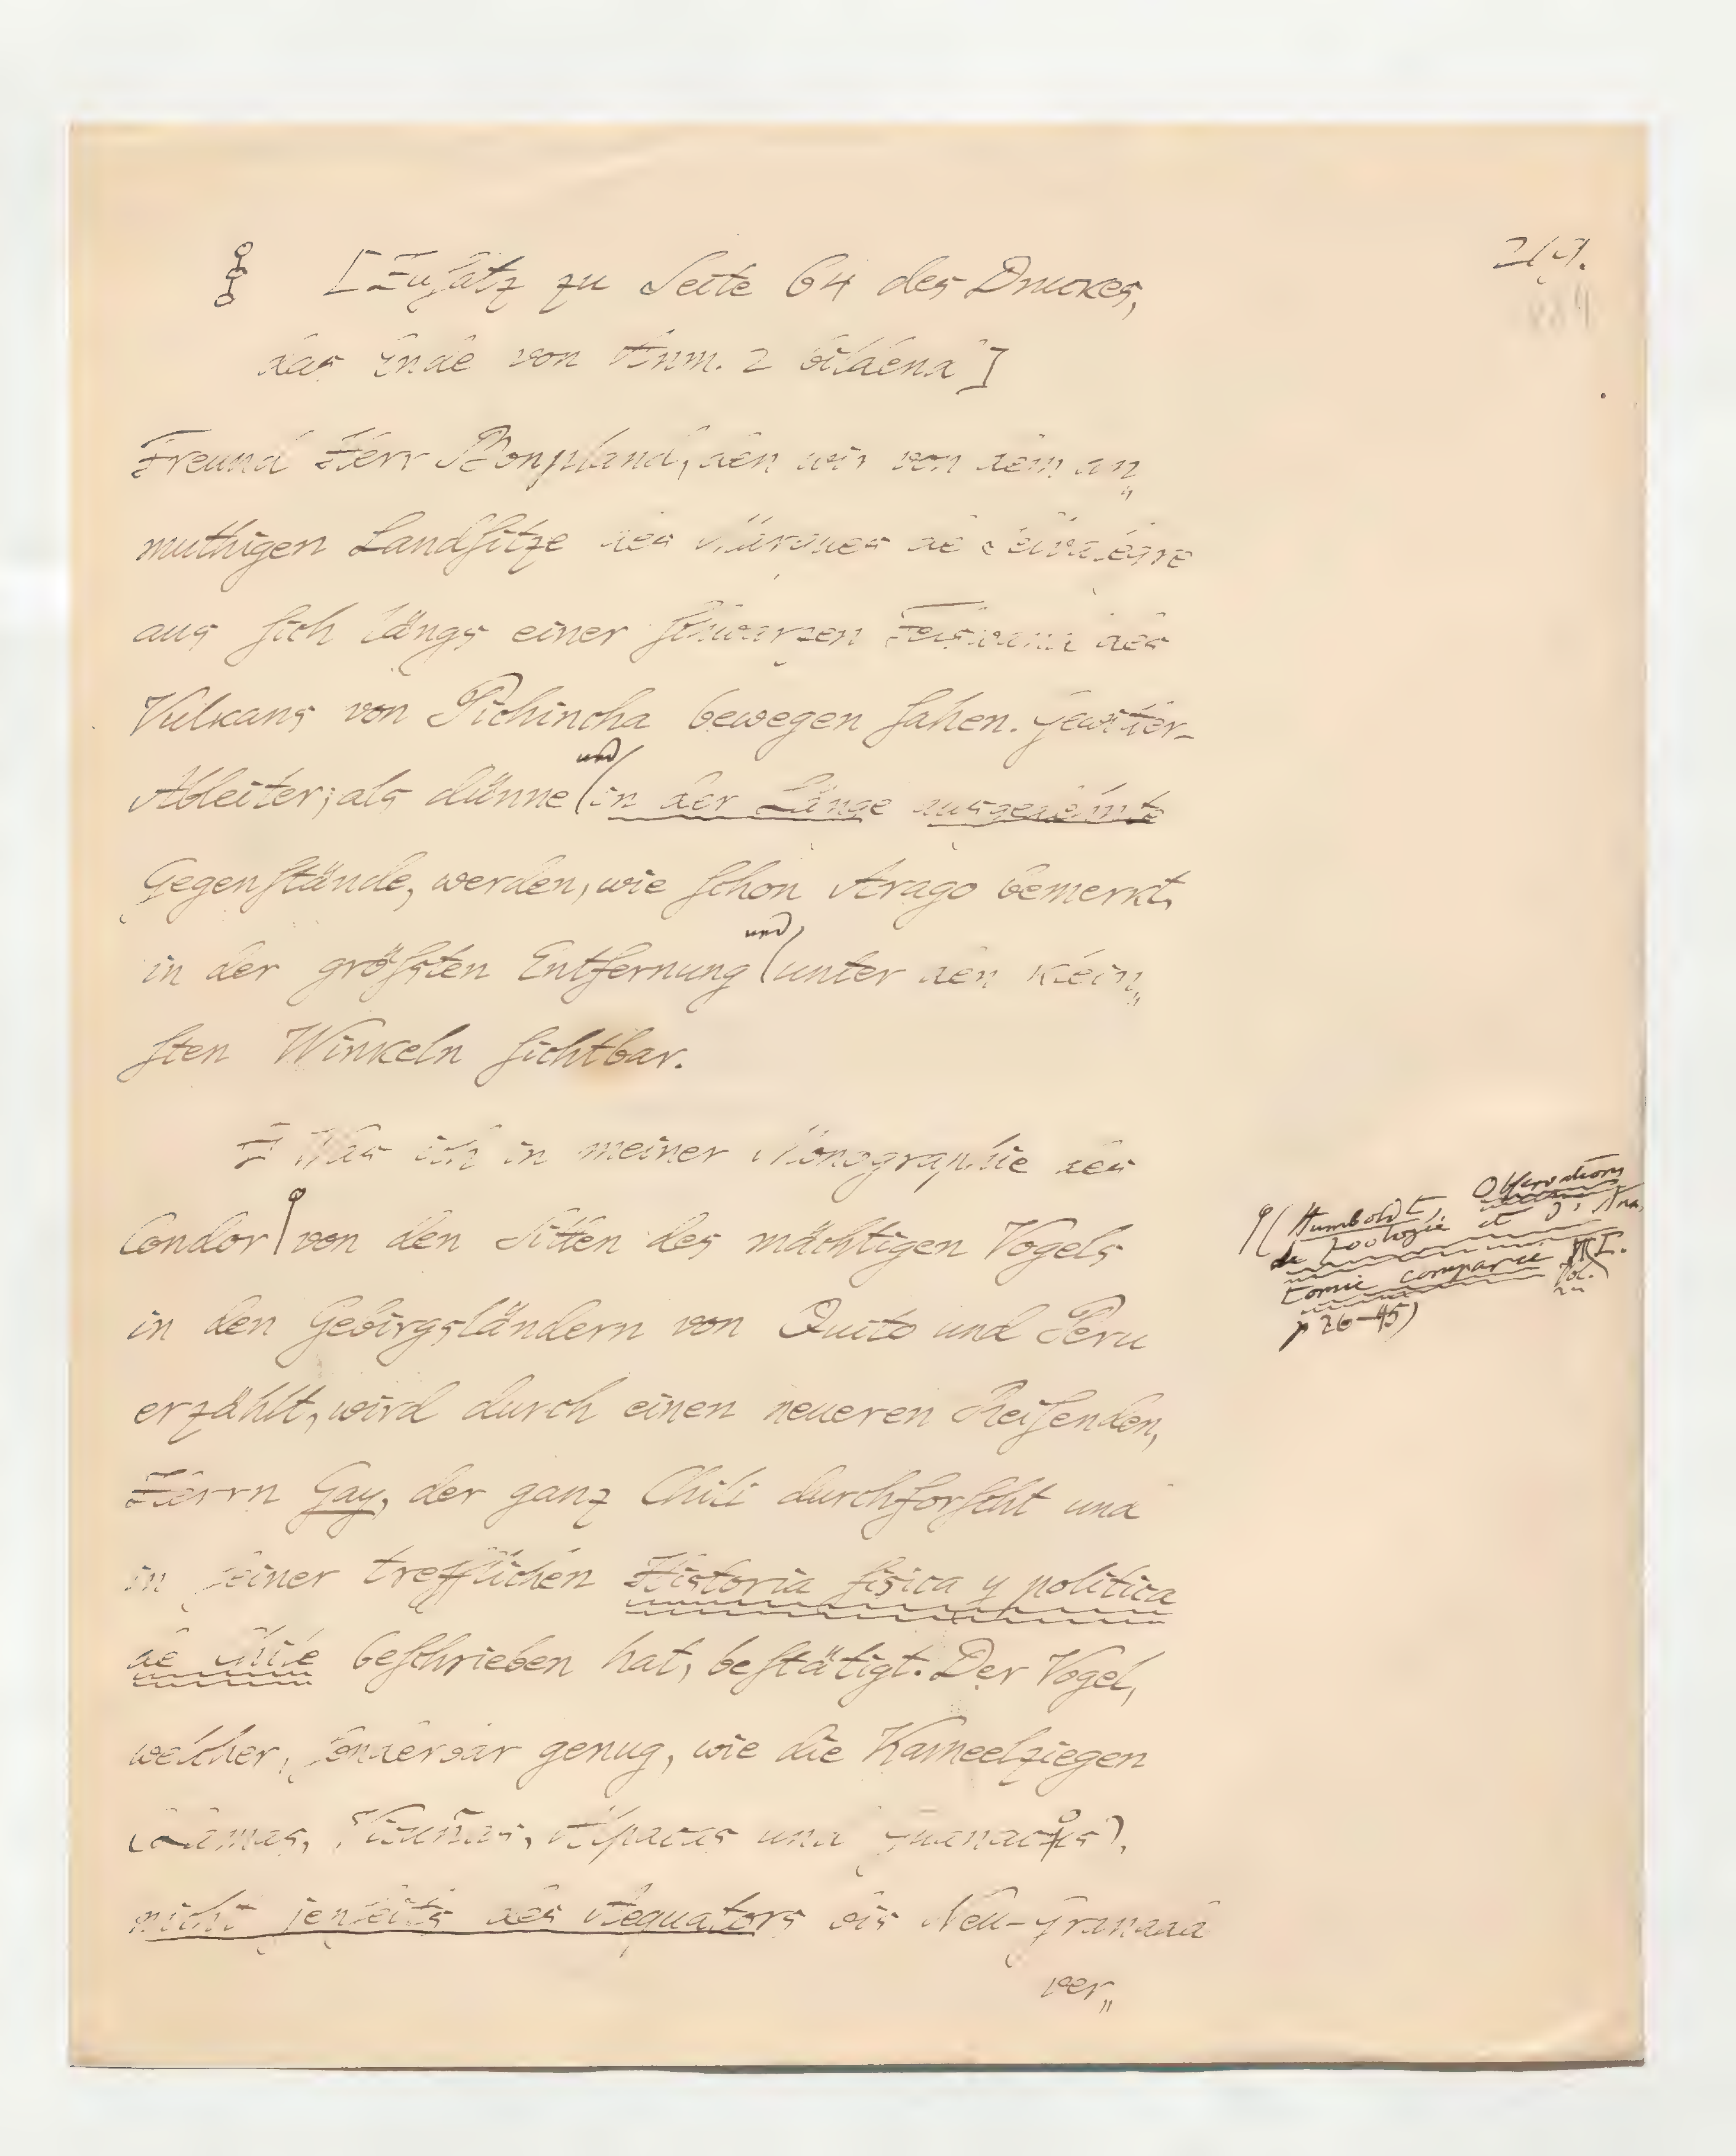 [Zusatz zu Seite 64 des Druckes,
das Ende von Anm. 2 bildend]
Freund Herr Bonpland, den wir von dem an„
muthigen Landsitze des Marques de Selvalegre
aus sich längs einer schwarzen Felswand des
Vulkans von Pichincha bewegen sahen. Gewitter-
Ableiter, als dünne und in der Länge ausgedehnte
Gegenstände, werden, wie schon Arago bemerkt,
in der größten Entfernung und unter den klein„
sten Winkeln sichtbar.
Was ich in meiner Monographie des
Condor von den Sitten des mächtigen Vogels
in den Gebirgsländern von Quito und Peru
erzählt, wird durch einen neueren Reisenden,
Herrn Gay, der ganz Chili durchforscht und
in seiner trefflichen Historia fisica y politica
de Chile beschrieben hat, bestätigt. Der Vogel,
welcher, sonderbar genug, wie die Kameelziegen
(Lamas, Vicuñas, Alpacas und Guanacos),
nicht jenseits des Aequators bis Neu-Granada
ver„
(Humboldt, Observations
de Zoologie et d'Ana
tomie comparée Vol. I.
p 26–45)